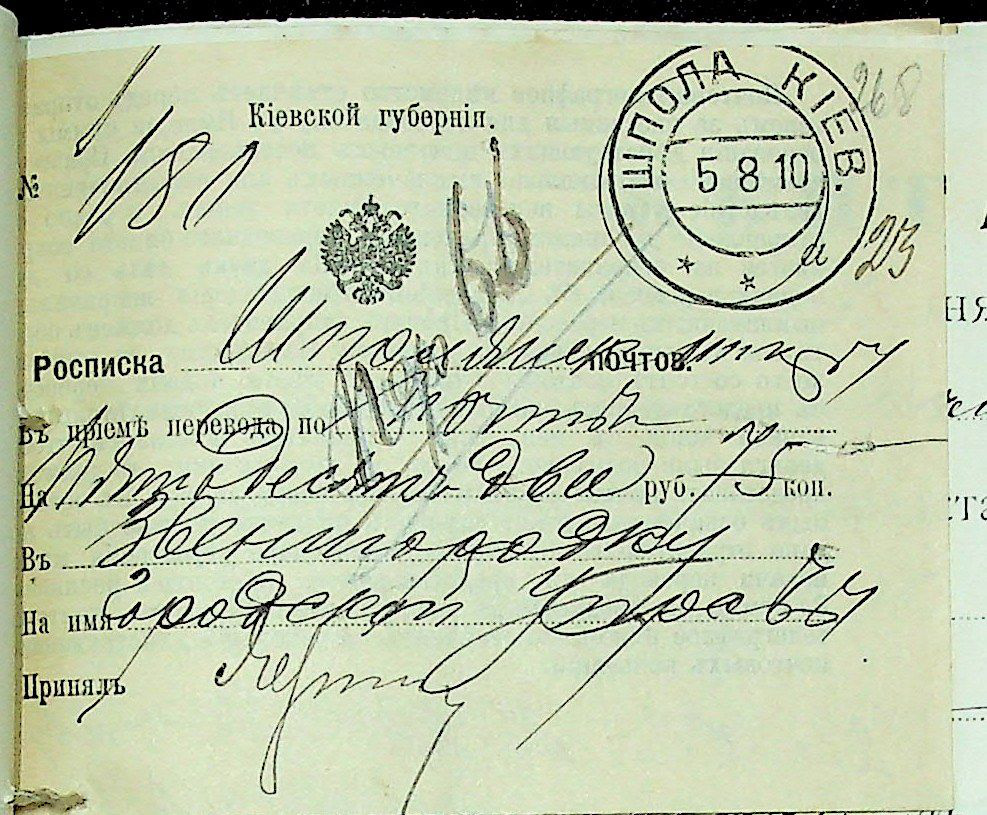 ШПОЛА КІЕВ.
5 8 10
и
268
Кіевской губерніи.
№ 181
23
Росписка Шполянск. почтов.
Въ пріемѣ перевода по почтѣ
На Пятьдесятъ две руб. 75 коп.
Въ Звенигородку
На имя Городской Управы
Принялъ